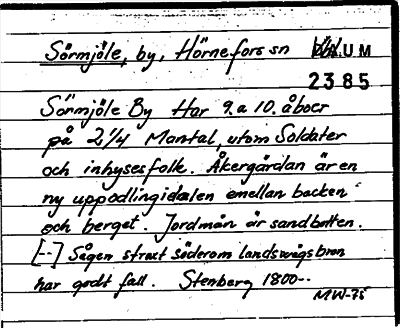 Sörmjöle, by, Hörnefors sn D.A.U.M
2385
Sörmjöle By Har 9. a 10. åboer
på 2 1/4 Mantal, utom Soldater
och inhysesfolk. Åkergärdan är en
ny uppodling i dalen emellan backen
och berget. Jordmån är sandbotten.
[--] Sågen straxt söder om landsvägsbron
har godt fall. Stenberg 1800--
MW-75